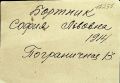 Бортник
София Львовна
1914
Пограничная 13